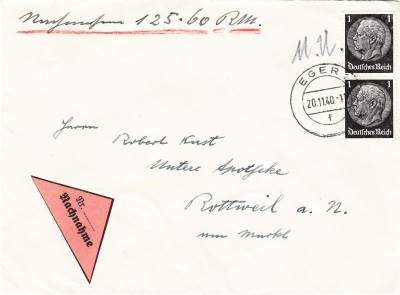 Nachnahme 125.60 RM.
1 1
Deutsches Reich
EGER
20.11.40.-1
f
1 1
Deutsches Reich
Herrn
Robert Kust
Untere Apotheke
Rottweil a. N.
am Markt
Nr.
Nachnahme